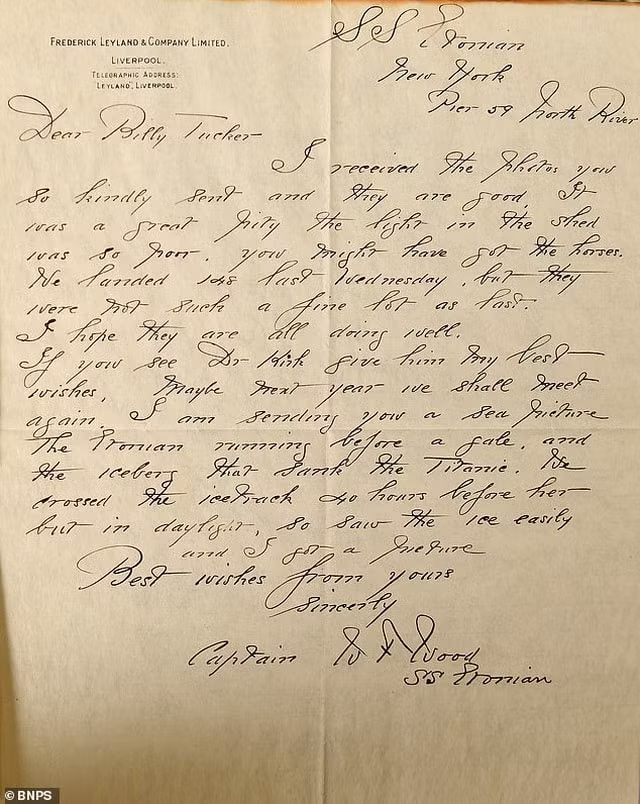 FREDERICK LEYLAND & COMPANY LIMITED.
LIVERPOOL.
TELEGRAPHIC ADDRESS:
"LEYLAND", LIVERPOOL.
SS Etonian
New York
Pier 59 North River
Dear Billy Tucker
I received the photos you
so kindly sent and they are good. It
was a great pity the light in the shed
was so poor. you might have got the horses.
We landed 148 last Wednesday, but they
were not such a fine lot as last.
I hope they are all doing well.
If you see Dr Kirk give him my best
wishes, Maybe next year we shall meet
again. I am sending you a sea picture
The Etonian running before a gale, and
the iceberg that sank the Titanic. We
crossed the icetrack 40 hours before her
but in daylight, so saw the ice easily
and I got a picture
Best wishes from yours
Sincerly
Captain W F Wood
SS Etonian
© BNPS